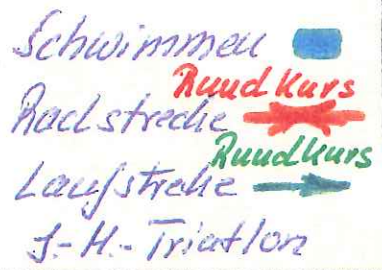 Schwimmen
Rundkurs
Radstrecke
Rundkurs
Laufstreke
J.-H.-Triatlon